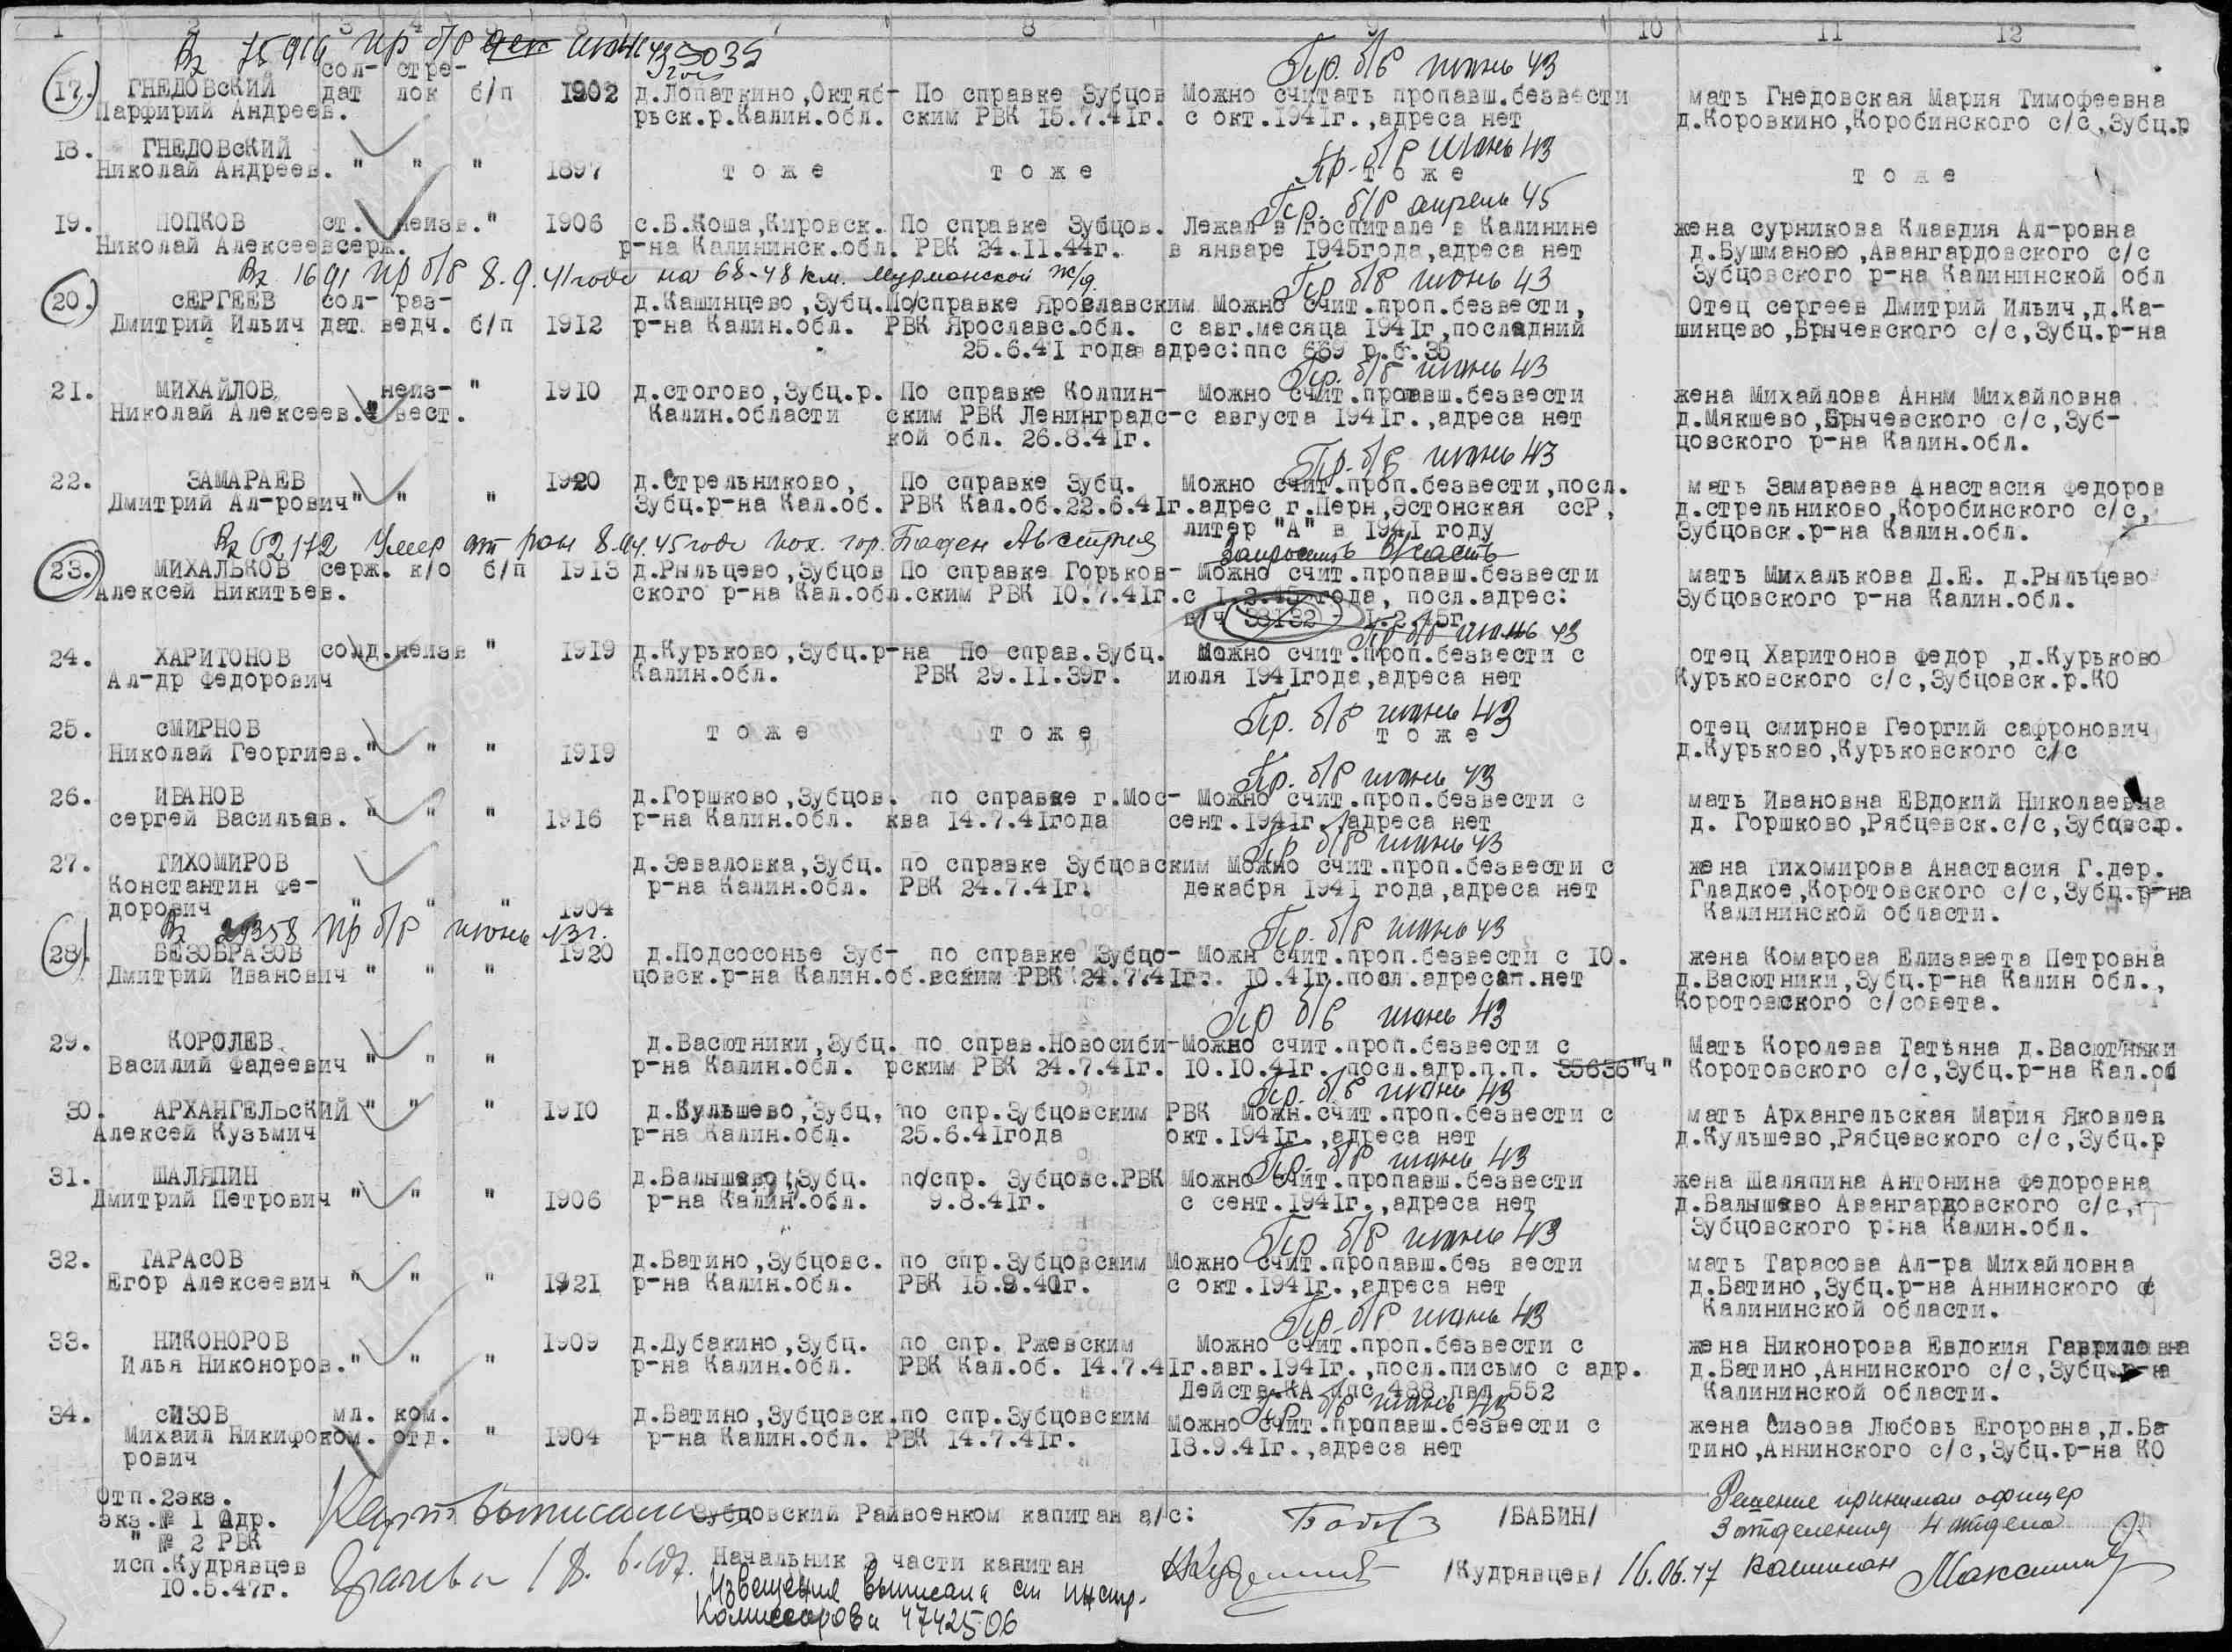 1 2 3 4 5 6 7 8 9 10 11 12
Вх 75916 пр б/в июнь 43
Пр. б/в июнь 43
17. ГНЕДОВСКИЙ сол- стре-
дат лок б/п 1902 д.Лопаткино,Октяб- По справке Зубцов Можно считать пропавш.безвести мать Гнедовская Мария Тимофеевна
Парфирий Андреев. рьск.р.Калин.обл. ским РВК 15.7.41г. с окт.1941г.,адреса нет д.Коровкино,Коробинского с/с,Зубц.р
Пр. б/в июнь 43
18. ГНЕДОВСКИЙ
Николай Андреев. " " " 1897 т о ж е т о ж е т о ж е т о ж е
Пр. б/в апрель 45
19. ПОПКОВ ст. неизв." 1906 с.Б.Коша,Кировск. По справке Зубцов. Лежал в госпитале в Калинине жена сурникова Клавдия Ал-ровна
Николай Алексеевсерж. р-на Калининск.обл. РВК 24.11.44г. в январе 1945года,адреса нет д.Бушманово,Авангардовского с/с
Зубцовского р-на Калининской обл
Вх 1691 пр б/в 8.9.41 года на 68-48 км. Мурманской ж/д.
Пр б/в июнь 43
20. сЕРГЕЕВ сол- раз- д.Кашинцево,Зубц.По/справке Ярославским Можно счит.проп.безвести, Отец сергеев Дмитрий Ильич,д.Ка-
Дмитрий Ильич дат ведч. б/п 1912 р-на Калин.обл. РВК Ярославс.обл. с авг.месяца 1941г,последний шинцево,Брычевского с/с,Зубц.р-на
25.6.41 года адрес:ппс 669 р.б.35
Пр. б/в июнь 43
21. МИХАЙЛОВ неиз- " 1910 д.стогово,Зубц.р. По справке Колпин- Можно счит.пропавш.безвести жена Михайлова Аннм Михайловна
Николай Алексеев." вест. Калин.области ским РВК Ленинградс-с августа 1941г.,адреса нет д.Мякшево,Брычевского с/с,Зуб-
кой обл. 26.8.41г. цовского р-на Калин.обл.
Пр. б/в июнь 43
22. ЗАМАРАЕВ 1920 д.Стрельниково, По справке Зубц. Можно счит.проп.безвести,посл. мать Замараева Анастасия Федоров
Дмитрий Ал-рович" " " Зубц.р-на Кал.об. РВК Кал.об.22.6.41г.адрес г.Перн,Эстонская ссР, д.стрельниково,Коробинского с/с,
литер "А" в 1941 году Зубцовск.р-на Калин.обл.
Вх 62172 Умер от ран 8.04.45 года пох. гор. Баден Австрия
Запросить В/часть
23. МИХАЛЬКОВ серж. к/о б/п 1913 д.Рыльцево,Зубцов По справке Горьков- Можно счит.пропавш.безвести мать Михалькова Д.Е. д.Рыльцево
Алексей Никитьев. ского р-на Кал.обл.ским РВК 10.7.41г.с 1.2.45 года, посл.адрес: Зубцовского р-на Калин.обл.
в/ч 38132 - 1.2.45г.
Пр б/в июнь 43
24. ХАРИТОНОВ солд.неизв " 1919 д.Курьково,Зубц.р-на По справ.Зубц. Можно счит.проп.безвести с отец Харитонов Федор ,д.Курьково
Ал-др Федорович Калин.обл. РВК 29.11.39г. июля 1941года,адреса нет Курьковского с/с,Зубцовск.р.КО
Пр. б/в июнь 43
25. сМИРНОВ т о ж е т о ж е т о ж е отец смирнов Георгий сафронович
Николай Георгиев." " " 1919 д.Курьково,Курьковского с/с
Пр. б/в июнь 43
26. ИВАНОВ д.Горшково,Зубцов. по справке г.Мос- Можно счит.проп.безвести с мать Ивановна ЕВдокий Николаевна
сергей Васильев. " " " 1916 р-на Калин.обл. ква 14.7.41года сент.1941г.,адреса нет д. Горшково,Рябцевск.с/с,Зубцвс.р.
Пр б/в июнь 43
27. ТИХОМИРОВ д.Зеваловка,Зубц. по справке Зубцовским Можно счит.проп.безвести с жена Тихомирова Анастасия Г.дер.
Константин Фе- р-на Калин.обл. РВК 24.7.41г. декабря 1941 года,адреса нет Гладкое,Коротовского с/с,Зубц.р-на
дорович " " " 1904 Калининской области.
Вх 29358 пр б/в июнь 43г.
Пр. б/в июнь 43
28. БЕЗОБРАЗОВ 1920 д.Подсосонье Зуб- по справке Зубцо- Можн счит.проп.безвести с 10. жена Комарова Елизавета Петровна
Дмитрий Иванович " " " цовск.р-на Калин.об.вским РВК 24.7.41г. 10.41г.посл.адресап.нет д.Васютники,Зубц.р-на Калин обл.,
Коротовского с/совета.
Пр б/в июнь 43
29. КОРОЛЕВ д.Васютники,Зубц. по справ.Новосиби-Можно счит.проп.безвести с Мать Королева Татьяна д.Васютники
Василий Фадеевич " " " р-на Калин.обл. рским РВК 24.7.41г. 10.10.41г. посл.адр.п.п. 35636"ч" Коротовского с/с,Зубц.р-на Кал.об
Пр. б/в июнь 43
30. АРХАНГЕЛЬСКИЙ " " " 1910 д.Кульшево,Зубц. по спр.Зубцовским РВК Можн.счит.проп.безвести с мать Архангельская Мария Яковлев
Алексей Кузьмич р-на Калин.обл. 25.6.41года окт.1941г.,адреса нет д.Кульшево,Рябцевского с/с,Зубц.р
Пр. б/в июнь 43
31. ШАЛЯПИН д.Балышево,Зубц. по/спр. Зубцовс.РВК Можно счит.пропавш.безвести жена Шаляпина Антонина Федоровна
Дмитрий Петрович " " " 1906 р-на Калин.обл. 9.8.41г. с сент.1941г.,адреса нет д.Балышево Авангардовского с/с,
Зубцовского р.на Калин.обл.
Пр б/в июнь 43
32. ТАРАсОВ д.Батино,Зубцовс. по спр.Зубцовским Можно счит.пропавш.без вести мать Тарасова Ал-ра Михайловна
Егор Алексеевич " " " 1921 р-на Калин.обл. РВК 15.9.40г. с окт.1941г.,адреса нет д.Батино,Зубц.р-на Аннинского с
Калининской области.
Пр. б/в июнь 43
33. НИКОНОРОВ 1909 д.Дубакино,Зубц. по спр. Ржевским Можно счит.проп.безвести с жена Никонорова Евдокия Гавриловна
Илья Никоноров." " " р-на Калин.обл. РВК Кал.об. 14.7.41г.авг.1941г.,посл.письмо с адр. д.Батино,Аннинского с/с,Зубц.р-на
Действ.КА ппс 488 пвл 552 Калининской области.
Пр б/в июнь 43
34. сИЗОВ мл. ком. д.Батино,Зубцовск.по спр.Зубцовским Можно счит.пропавш.безвести с жена Сизова Любовь Егоровна,д.Ба-
Михаил Никифоком. отд. " 1904 р-на Калин.обл. РВК 14.7.41г. 18.9.41г.,адреса нет тино,Аннинского с/с,Зубц.р-на КО
рович
Отп.2экз.
экз.№ 1 Адр. Зубцовский Райвоенком капитан а/с: /БАБИН/
" № 2 РВК
исп.Кудрявцев Начальник 2 части капитан /Кудрявцев/
10.5.47г.
Карт выписали
Извещения выписана ст инстр.
Комиссарова 4742506
Решение принимал офицер
3 отделения 4 отдела
16.06.47 капитан